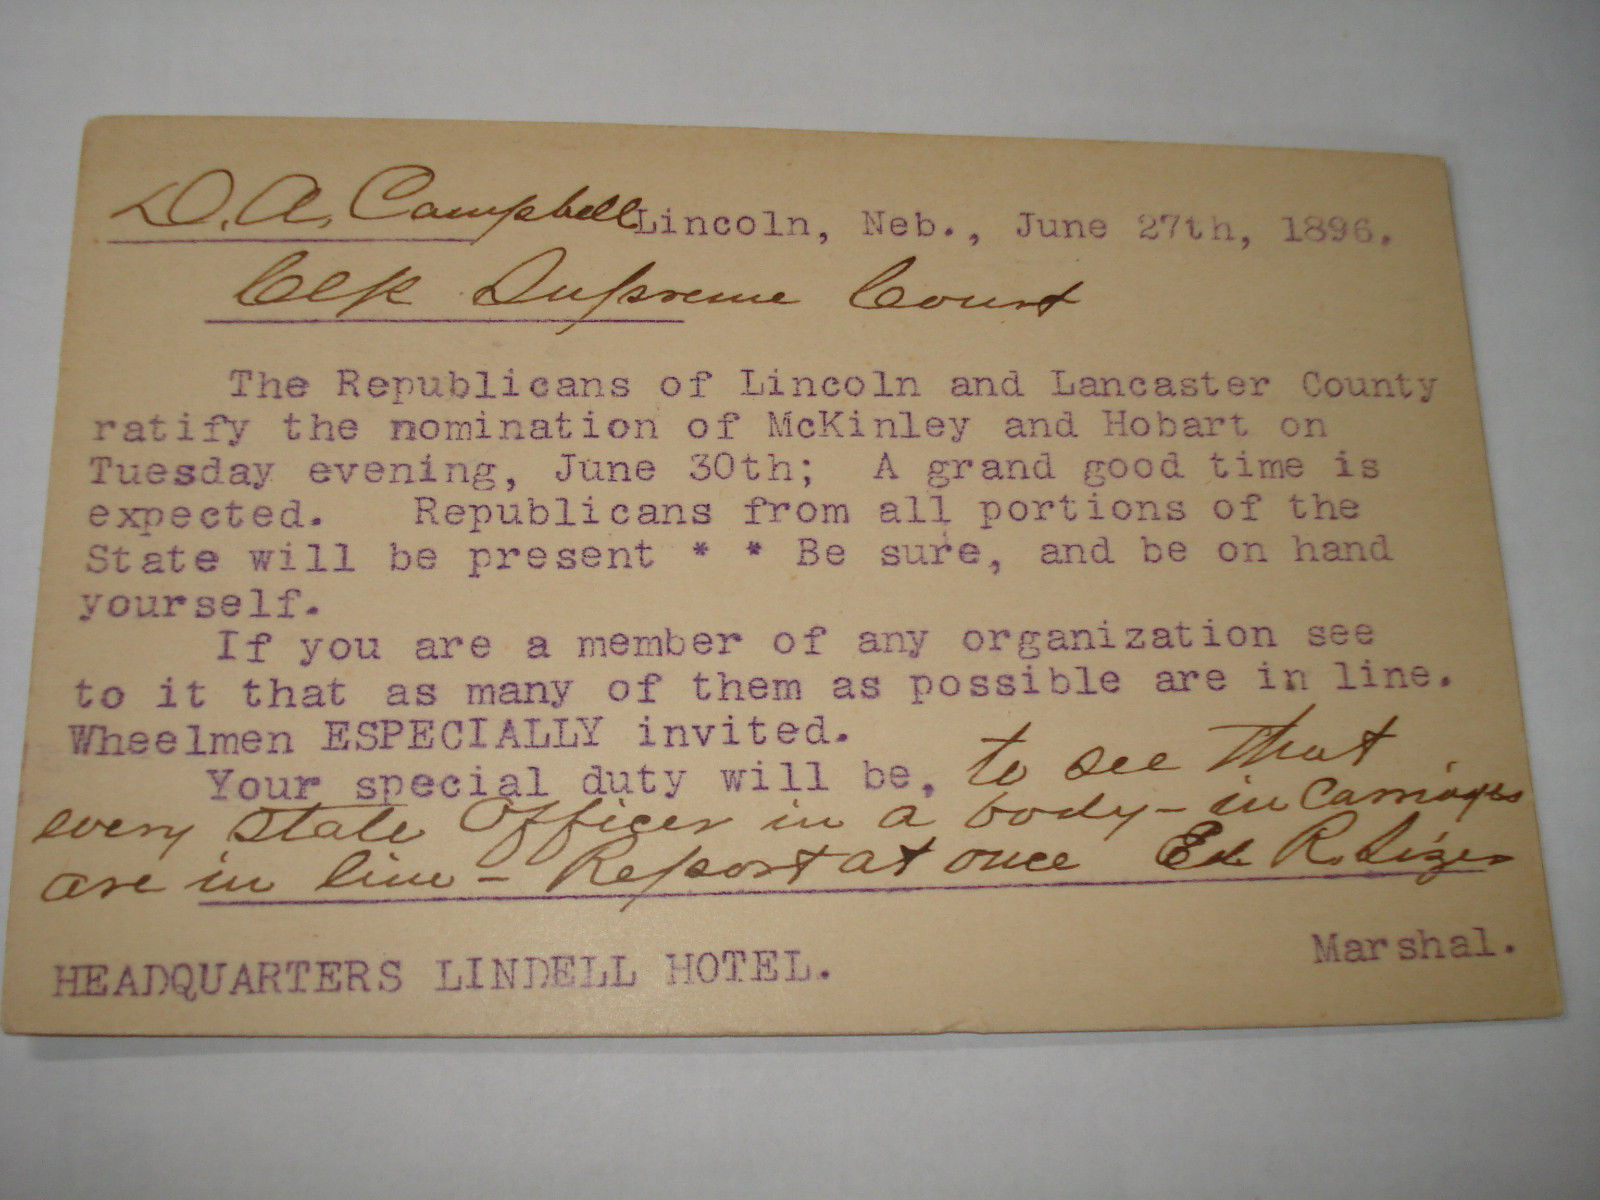 D. A. Campbell Lincoln, Neb., June 27th, 1896.
Clk Supreme Court
The Republicans of Lincoln and Lancaster County
ratify the nomination of McKinley and Hobart on
Tuesday evening, June 30th; A grand good time is
expected. Republicans from all portions of the
State will be present * * Be sure, and be on hand
yourself.
If you are a member of any organization see
to it that as many of them as possible are in line.
Wheelmen ESPECIALLY invited.
Your special duty will be, to see that
every State Officer in a body - in Carriages
are in line - Report at once Ed R. Sizer
Marshal.
HEADQUARTERS LINDELL HOTEL.